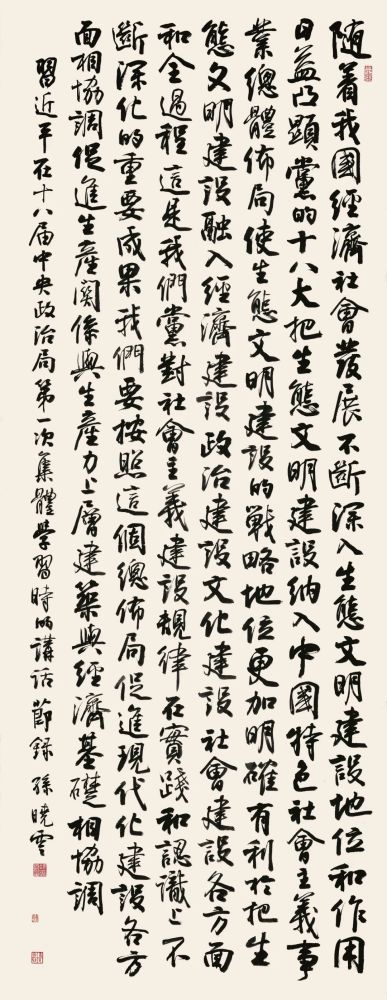 随着我國經濟社會發展不斷深入生態文明建設地位和作用
日益凸顯黨的十八大把生態文明建設納入中國特色社會主義事
業總體佈局使生態文明建設的戰略地位更加明確有利於把生
態文明建設融入經濟建設政治建設文化建設社會建設各方面
和全過程這是我們黨對社會主義建設規律在實踐和認識上不
斷深化的重要成果我們要按照這個總佈局促進現代化建設各方
面相協調促進生産關係與生産力上層建築與經濟基礎相協調
習近平在十八届中央政治局第一次集體學習時的講話節録 孫曉雲